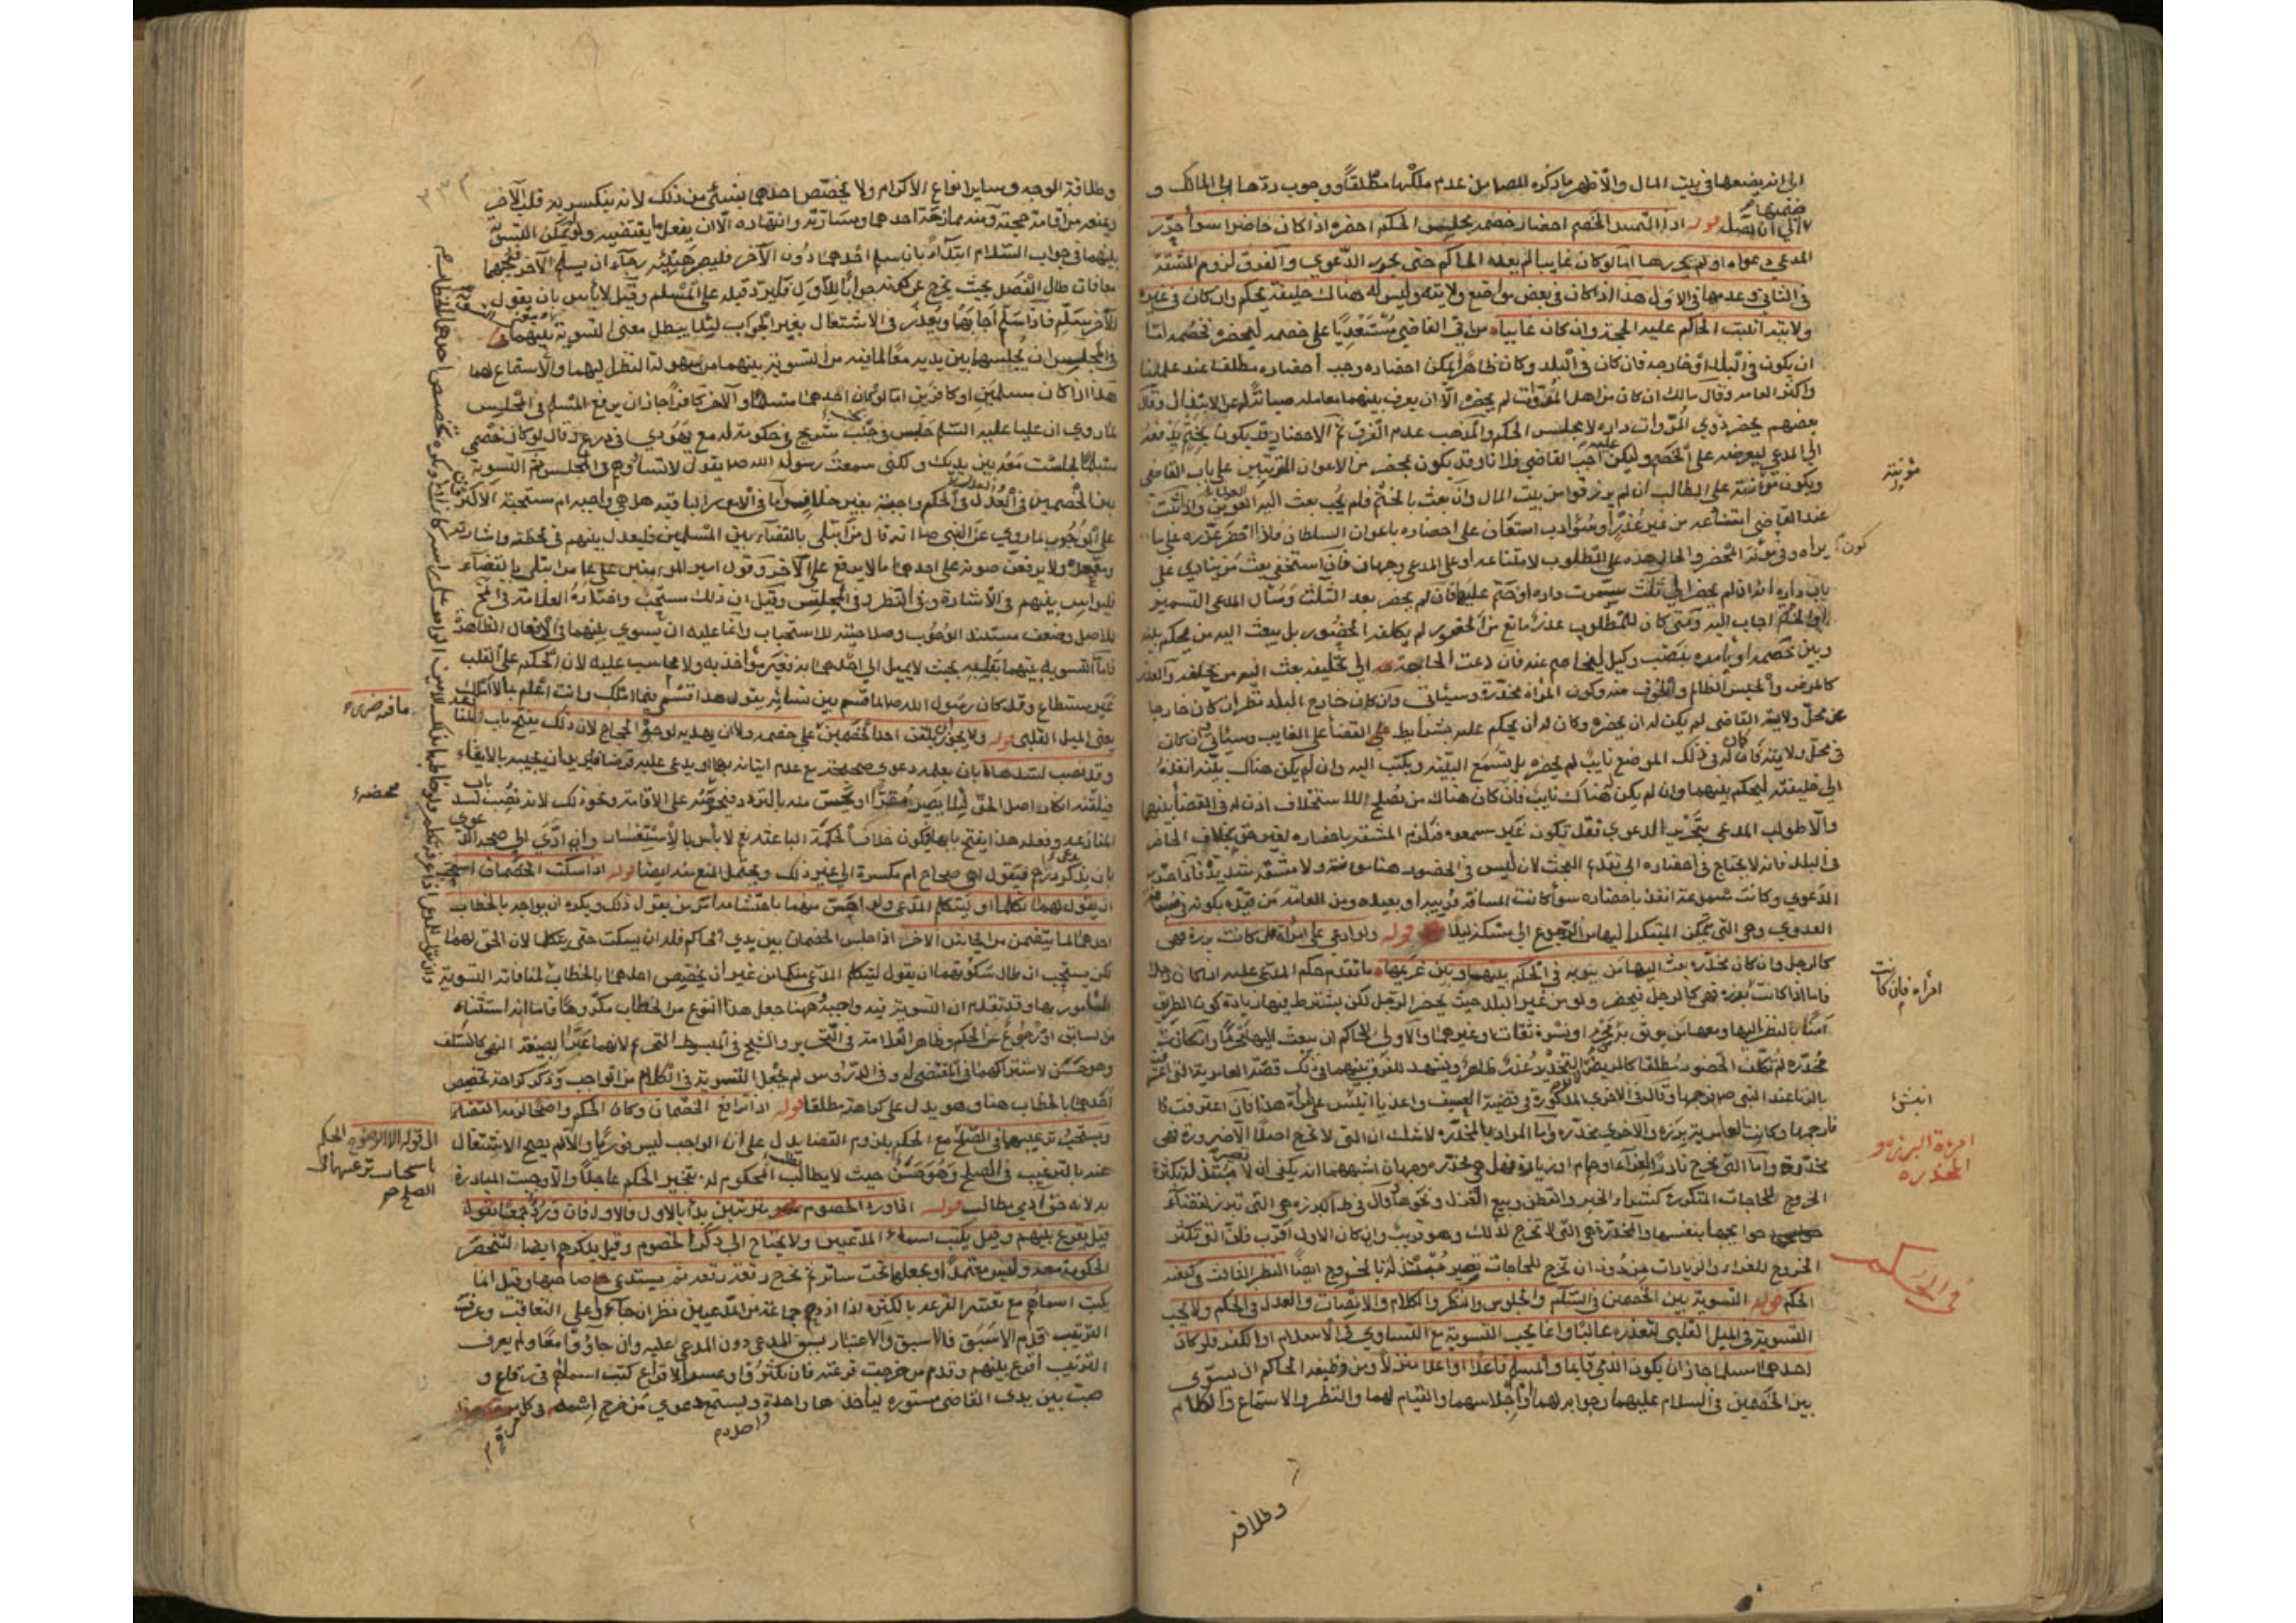 الى انه يضعها في بيت المال والاظهر ما ذكره المصا من عدم ملكها مطلقا ووجوب ردها الى المالك و
قوله اذا التمس الخصم احضار خصمه مجلس الحكم احضره اذا كان حاضرا سوآ حرّر
المدعي دعواه او لم يحررها اما لو كان غايبا لم يعده الحاكم حتى يحرر الدعوي والفرق لزوم المشقة
في الثاني وعدمها في الاول هذا اذا كان في بعض مواضع ولايته وليس له هناك خليفة يحكم وان كان في غير
ولايته اثبت الحاكم عليه الحجة وان كان غايبا من اتى القاضي مستعديا على خصمه ليحضره فخصمه اما
ان يكون في البلد او خارجه فان كان في البلد وكان ظاهرا يمكن احضاره وجب احضاره مطلقا عند علمائنا
واكثر العامه وقال مالك ان كان من اهل المروات لم يحضره الا ان يعرف بينهما معامله صيانة له عن الابتذال وقال
بعضهم يحضر ذوي المروات داره لا مجلس الحكم والمذهب عدم الفرق ثم الاحضار قد يكون بختم ينفذه
الى المدعي ليعرضه على الخصم وليكن عليه اجب القاضي فلانا وقد يكون بمحضر من الاعوان المرتبين على باب القاضي
ويكون مؤنته على الطالب ان لم يرزقوا من بيت المال وان بعث بالختم فلم يجب بعث اليه العون واذا ثبت
عند القاضي امتناعه من غير عذر او سوء ادب استعان على احضاره باعوان السلطان فاذا احضر عزره على ما
يراه وفي مؤنة المحضر والحال هذه على المطلوب لامتناعه او على المدعي وجهان فان استخفى بعث من ينادي على
باب داره انه ان لم يحضر الى ثلث سمرت داره او ختم عليها فان لم يحضر بعد الثلث وسال المدعي التسمير
او الختم اجاب اليه ومتى كان للمطلوب عذر مانع من الحضور لم يكلفه الحضور بل يبعث اليه من يحكم بينه
وبين خصمه او يامره بنصب وكيل ليخاصم عنه فان دعت الحاجة الى تحليفه بعث اليه من يحلفه والعذر
كالمرض والحبس الظالم والخوف منه وكون المراة مخدرة وسيئاتي وان كان خارج البلد نظر ان كان خارجا
عن محل ولاية القاضي لم يكن له ان يحضره وكان له ان يحكم عليه بشرايط القضا على الغايب وسيئاتي وان كان
في محل ولايته فان كان له في ذلك الموضع نايب لم يحضره بل يسمع البينه ويكتب اليه وان لم يكن هناك بينه انفذه
الى خليفته ليحكم بينهما وان لم يكن هناك نايب فان كان هناك من يصلح للاستخلاف اذن له في القضا بينهما
والا طولب المدعي بتحرير الدعوي فقد تكون غير مسموعه فيلزم المشقه باحضاره لغير حق بخلاف الحاضر
في البلد فانه لا يحتاج في احضاره الى تقدم البحث لان ليس في الحضور هنا مؤنة ولا مشقه شديدة فاذا حرر
الدعوي وكانت مسموعة انفذ باحضاره سوآ كانت المسافة قريبه او بعيده ومن العامه من قيده بكونه في مسافة
العدوي وهي التي يمكن المبتكر اليها من الرجوع الى مسكنه ليلا قوله ولو ادعي على امراة فان كانت برزة فهي
كالرجل وان كان مخدرة بعث اليها من ينوبه في الحكم بينها وبين غريمها ما تقدم حكم المدعي عليه اذا كان رجلا
فاما اذا كانت برزة فهي كالرجل فيحضر ولو من غير البلد حيث يحضر الرجل لكن يشترط فيها زيادة كون الطريق
آمنا بالنظر اليها ومعها من يوثق به من محرم او نسوة ثقات وغيرهما والاولى للحاكم ان يبعث اليها محرما وان كانت
مخدرة لم تكلف الحضور مطلقا كالمريض التخدير عذر ظاهر ويشهد للفرق بينهما في ذلك قصة الغامدية التي اعترفت
بالزنا عند النبي ص فرجمها وقال في الاخري المذكورة في قضية العسيف واغد يا انيس على امراة هذا فان اعترفت
فارجمها وكانت الغامدية برزة والاخري مخدرة واما المراد بالمخدرة لا شك ان التي لا تخرج اصلا الا لضرورة فهي
مخدرة واما التي تخرج نادرا لعزاء او حمام او زيارة فهل هي مخدرة وجهان اشبههما انه يكفي ان لا تصير مبتذلة بكثرة
الخروج للحاجات المتكررة كشراء الخبز والقطن وبيع الغزل ونحوها وقال في ط البرزه هي التي تبرز لقضآء
حوايجها بنفسها والمخدرة هي التي لا تخرج لذلك وهو قريب وان كان الاول اقرب فلعل التي تكثر
الخروج للعزاء والزيارات من دون ان تخرج للحاجات تصير مبتذلة بالخروج ايضا النظر الثالث في كيفية
الحكم قوله التسوية بين الخصمين في السلم والجلوس والنظر والكلام والانصات والعدل في الحكم ولا يجب
التسوية في الميل القلبي لتعذره غالبا وانما يجب التسوية مع التساوي في الاسلام او الكفر فلو كان
احدهما مسلما جاز ان يكون الذمي قايما والمسلم قاعدا او اعلا منزلا ومن وظيفة الحاكم ان يسوّى
بين الخصمين في السلام عليهما وجوابه لهما واجلاسهما والقيام لهما والنظر والاستماع والكلام
وطلاقة
مؤنته
كون
امرأه فان كانت
امرءة البرزه و
المخدره
في الحكم
٣٣٢
وطلاقة الوجه وساير انواع الاكرام ولا يخصّص احدهما بشئ من ذلك لانه ينكسر به قلب الآخر
ويمنعه من اقامة حجته ومنه ممازحة احدهما ومسارّته وانتهاره الا ان يفعل ما يقتضيه ولو يمكن التسوية
بينهما في جواب السلام ابتدآء بان سلم احدهما دون الآخر فليصبر هنيئة رجآء ان يسلم الآخر فيجيبهما
معا فان طال الفصل بحيث يخرج عن كونه جوابا للاول فليرد قبله على المسلم وقيل لا باس بان يقول
للآخر سلّم فاذا سلم اجابهما ويعذر في الاشتغال بغير الجواب ليلا يبطل معنى التسوية بينهما
في المجلس ان يجلسهما بين يديه معا لما فيه من التسوية بينهما من سهولة النظر اليهما والاستماع لهما
هذا اذا كان مسلمين او كافرين اما لو كان احدهما مسلما والآخر كافرا جاز ان يرفع المسلم في المجلس
لما روي ان عليا عليه السلم جلس في جنب شريح في حكومة له مع يهودي في درع وقال لو كان خصمي
مسلما لجلست معه بين يديك ولكني سمعت رسول الله ص يقول لا تساووهم في المجلس ثم التسوية
بين الخصمين في العدل في الحكم واجبة بغير خلاف واما في الامور الباقيه هل هي واجبه ام مستحبة الاكثر
على الوجوب لما روي عن النبي ص انه قال من ابتلي بالقضآء بين المسلمين فليعدل بينهم في لحظه واشارته
ومقعده ولا يرفعن صوته على احدهما ما لا يرفع على الآخر وقول امير المومنين علي ع من ابتلي بالقضآء
فليواس بينهم في الاشارة وفي النظر وفي المجلس وقيل ان ذلك مستحب واختاره العلامة في المخ
للاصل وضعف مستند الوجوب وصلاحيته للاستحباب وانما عليه ان يسوي بينهما في الافعال الظاهرة
فاما التسوية بينهما بقلبه بحيث لا يميل الى احدهما به فغير مؤاخذ به ولا محاسب عليه لان الحكم على القلب
غير مستطاع وقد كان رسول الله ص لما قسم بين نسائه يقول هذا قسمي فيما املك وانت اعلم بما لا املك
يعني الميل القلبي قوله ولا يجوز ان يلقن احد الخصمين على خصمه ولا ان يهديه لوجوه الحجاج لان ذلك يفتح باب المنازعه
وقد نصب لسدها بان يعلمه دعوى صحيحة مع عدم اتيانه بها او يدعي عليه قرضا فيريد ان يجيب بالايفاء
فيلقنه انكار اصل الحق ليلا يصير مقرا او يحس منه بالتردد فيحرضه على الاقامة ونحو ذلك لانه نصب لسد باب
المنازعه وفعله هذا يفتح بابها فيكون خلاف الحكمة الباعثه نعم لا باس بالاستفسار وان ادّي الى صحه الدعوى
بان يذكر درهم فيقول اهي صحاح ام مكسرة الى غير ذلك ويحتمل المنع منه ايضا قوله اذا سكت الخصمان استحب
ان يقول لهما تكلما او ليتكلم المدعي ولو احس منهما باحتشامه امر من يقول ذلك ويكره ان يواجه بالخطاب
احدهما لما يتضمن من ايحاش الآخر اذا جلس الخصمان بين يدي الحاكم فله ان يسكت حتى يتكلما لان الحق لهما
لكن يستحب ان طال سكوتهما ان يقول ليتكلم المدعي منكما من غير ان يخصص احدهما بالخطاب لمنافاته التسوية
المامور بها وقد تقدم ان التسوية فيه واجبة وههنا جعل هذا النوع من الخطاب مكروها فاما انه استثناء
من السابق او رجوع عن الحكم وظاهر العلامة في التحرير والشيخ في المبسوط التحريم لانهما عبرا بصيغة النهي كالسالف
وهو حسن لاشتراكهما في المقتضي له وفي الدروس لم يجعل التسوية في الكلام من الواجب وذكر كراهة تخصيص
احدهما بالخطاب هنا وهو يدل على كراهته مطلقا قوله اذا ترافع الخصمان وكان الحكم واضحا لزمه القضا
ويستحب ترغيبهما في الصلح مع الحكم بلزوم القضا يدل على ان الواجب ليس فوريا والا لم يصح الاشتغال
عنه بالترغيب في الصلح وهو حسن حيث لا يطالب المحكوم له بتنجيز الحكم عاجلا والا وجبت المبادرة
به لانه حق ادمي مطالب قوله اذا ورد الخصوم مترتبين بدأ بالاول فالاول فان وردوا جميعا
قيل يقرع بينهم وقيل يكتب اسماء المدعيين ولا يحتاج الى ذكر الخصوم وقيل يذكرهم ايضا لتحضر
الحكومة معه وليس معتمدا ويجعلها تحت ساتر ثم يخرج رقعة رقعة ثم يستدعي صاحبها وقيل انما
يكتب اسماؤهم مع تعسر القرعه بالكثرة اذا ازدحم جماعة من المدعيين نظر ان جاؤا على التعاقب وعرف
الترتيب قدم الاسبق فالاسبق والاعتبار بسبق المدعي دون المدعي عليه وان جاؤوا معا او لم يعرف
الترتيب اقرع بينهم وقدم من خرجت قرعته فان كثروا وعسر الاقراع كتب اسماؤهم في رقاع و
صبت بين يدي القاضي مستوره لياخذها واحدة واحدة ويستمع دعوي من خرج اسمه
محضره
الى قوله الا الرضوه الحكم
باستحباب ترغيبهما في
الصلح